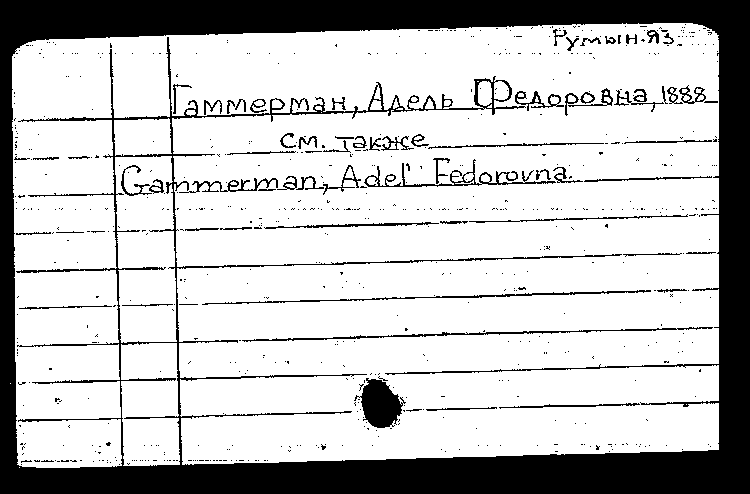 Румын.яз.
Гаммерман, Адель Федоровна, 1888
см. также
Gammerman, Adel' Fedorovna.